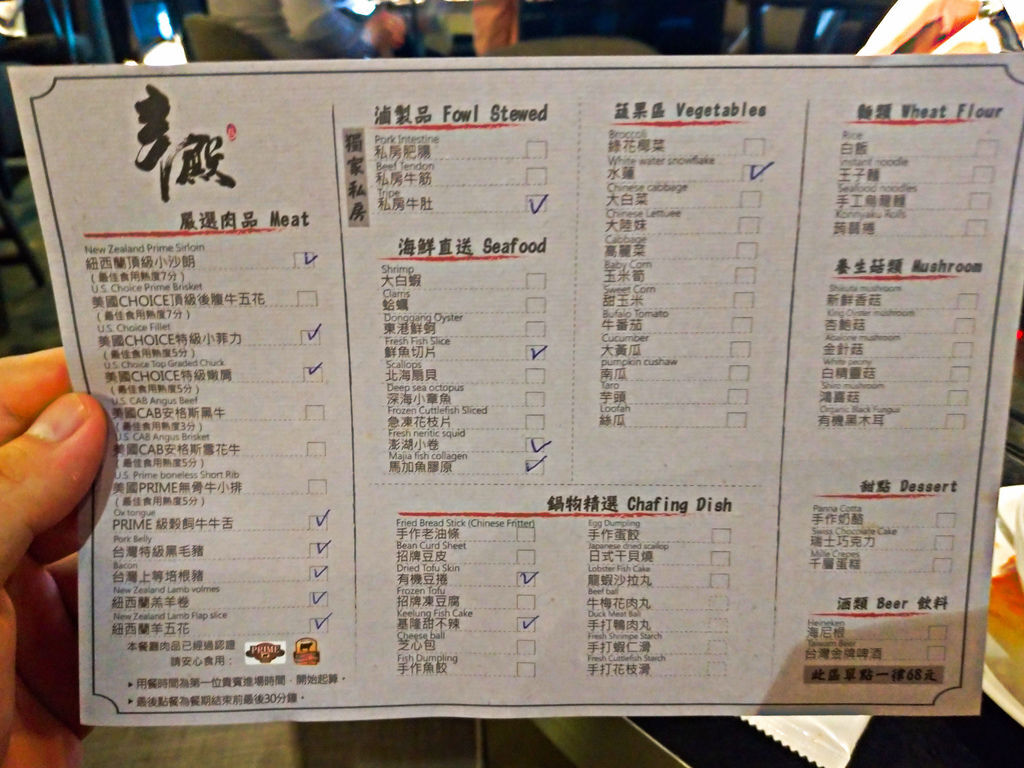 嚴選肉品 Meat
New Zealand Prime Sirloin
紐西蘭頂級小沙朗
(最佳食用熟度7分)
U.S. Choice Prime Brisket
美國CHOICE頂級後腹牛五花
(最佳食用熟度7分)
U.S. Choice Fillet
美國CHOICE特級小菲力
(最佳食用熟度5分)
U.S. Choice Top Graded Chuck
美國CHOICE特級嫩肩
(最佳食用熟度5分)
U.S. CAB Angus Beef
美國CAB安格斯黑牛
(最佳食用熟度3分)
U.S. CAB Angus Brisket
美國CAB安格斯雪花牛
(最佳食用熟度5分)
U.S. Prime boneless Short Rib
美國PRIME無骨牛小排
(最佳食用熟度5分)
Ox tongue
PRIME 級穀飼牛牛舌
Pork Belly
台灣特級黑毛豬
Bacon
台灣上等培根豬
New Zealand Lamb volmes
紐西蘭羔羊卷
New Zealand Lamb Flap slice
紐西蘭羊五花
本餐廳肉品已經過認證
請安心食用：
PRIME
▸用餐時間為第一位貴賓進場時間，開始起算。
▸最後點餐為餐期結束前最後30分鐘。
滷製品 Fowl Stewed
獨家私房
Pork Intestine
私房肥腸
Beef Tendon
私房牛筋
Tripe
私房牛肚
海鮮直送 Seafood
Shrimp
大白蝦
Clams
蛤蠣
Donggang Oyster
東港鮮蚵
Fresh Fish Slice
鮮魚切片
Scallops
北海扇貝
Deep sea octopus
深海小章魚
Frozen Cuttlefish Sliced
急凍花枝片
Fresh neritic squid
澎湖小卷
Majia fish collagen
馬加魚膠原
蔬果區 Vegetables
Broccoli
綠花椰菜
White water snowflake
水蓮
Chinese cabbage
大白菜
Chinese Lettuee
大陸妹
Cabbage
高麗菜
Baby Corn
玉米筍
Sweet Corn
甜玉米
Bufalo Tomato
牛番茄
Cucumber
大黃瓜
pumpkin cushaw
南瓜
Taro
芋頭
Loofah
絲瓜
鍋物精選 Chafing Dish
Fried Bread Stick (Chinese Fritter)
手作老油條
Bean Curd Sheet
招牌豆皮
Dried Tofu Skin
有機豆捲
Frozen Tofu
招牌凍豆腐
Keelung Fish Cake
基隆甜不辣
Cheese ball
芝心包
Fish Dumpling
手作魚餃
Egg Dumpling
手作蛋餃
Japanese dried scallop
日式干貝燒
Lobster Fish Cake
龍蝦沙拉丸
Beef ball
牛梅花肉丸
Duck Meat Ball
手打鴨肉丸
Fresh Shrimpe Starch
手打蝦仁滑
Fresh Cuttlefish Starch
手打花枝滑
麵類 Wheat Flour
Rice
白飯
Instant noodle
王子麵
Seafood noodles
手工烏龍麵
Konnyaku Rolls
蒟蒻捲
養生菇類 Mushroom
Shiikuta mushroom
新鮮香菇
King Oyster mushroom
杏鮑菇
Abalone mushroom
金針菇
White peony
白精靈菇
Shiro mushroom
鴻喜菇
Organic Black Fungus
有機黑木耳
甜點 Dessert
Panna Cotta
手作奶酪
Swiss Chocolate Cake
瑞士巧克力
Mille Crepes
千層蛋糕
酒類 Beer 飲料
Heineken
海尼根
Taiwan Beer
台灣金牌啤酒
此區單點一律68元